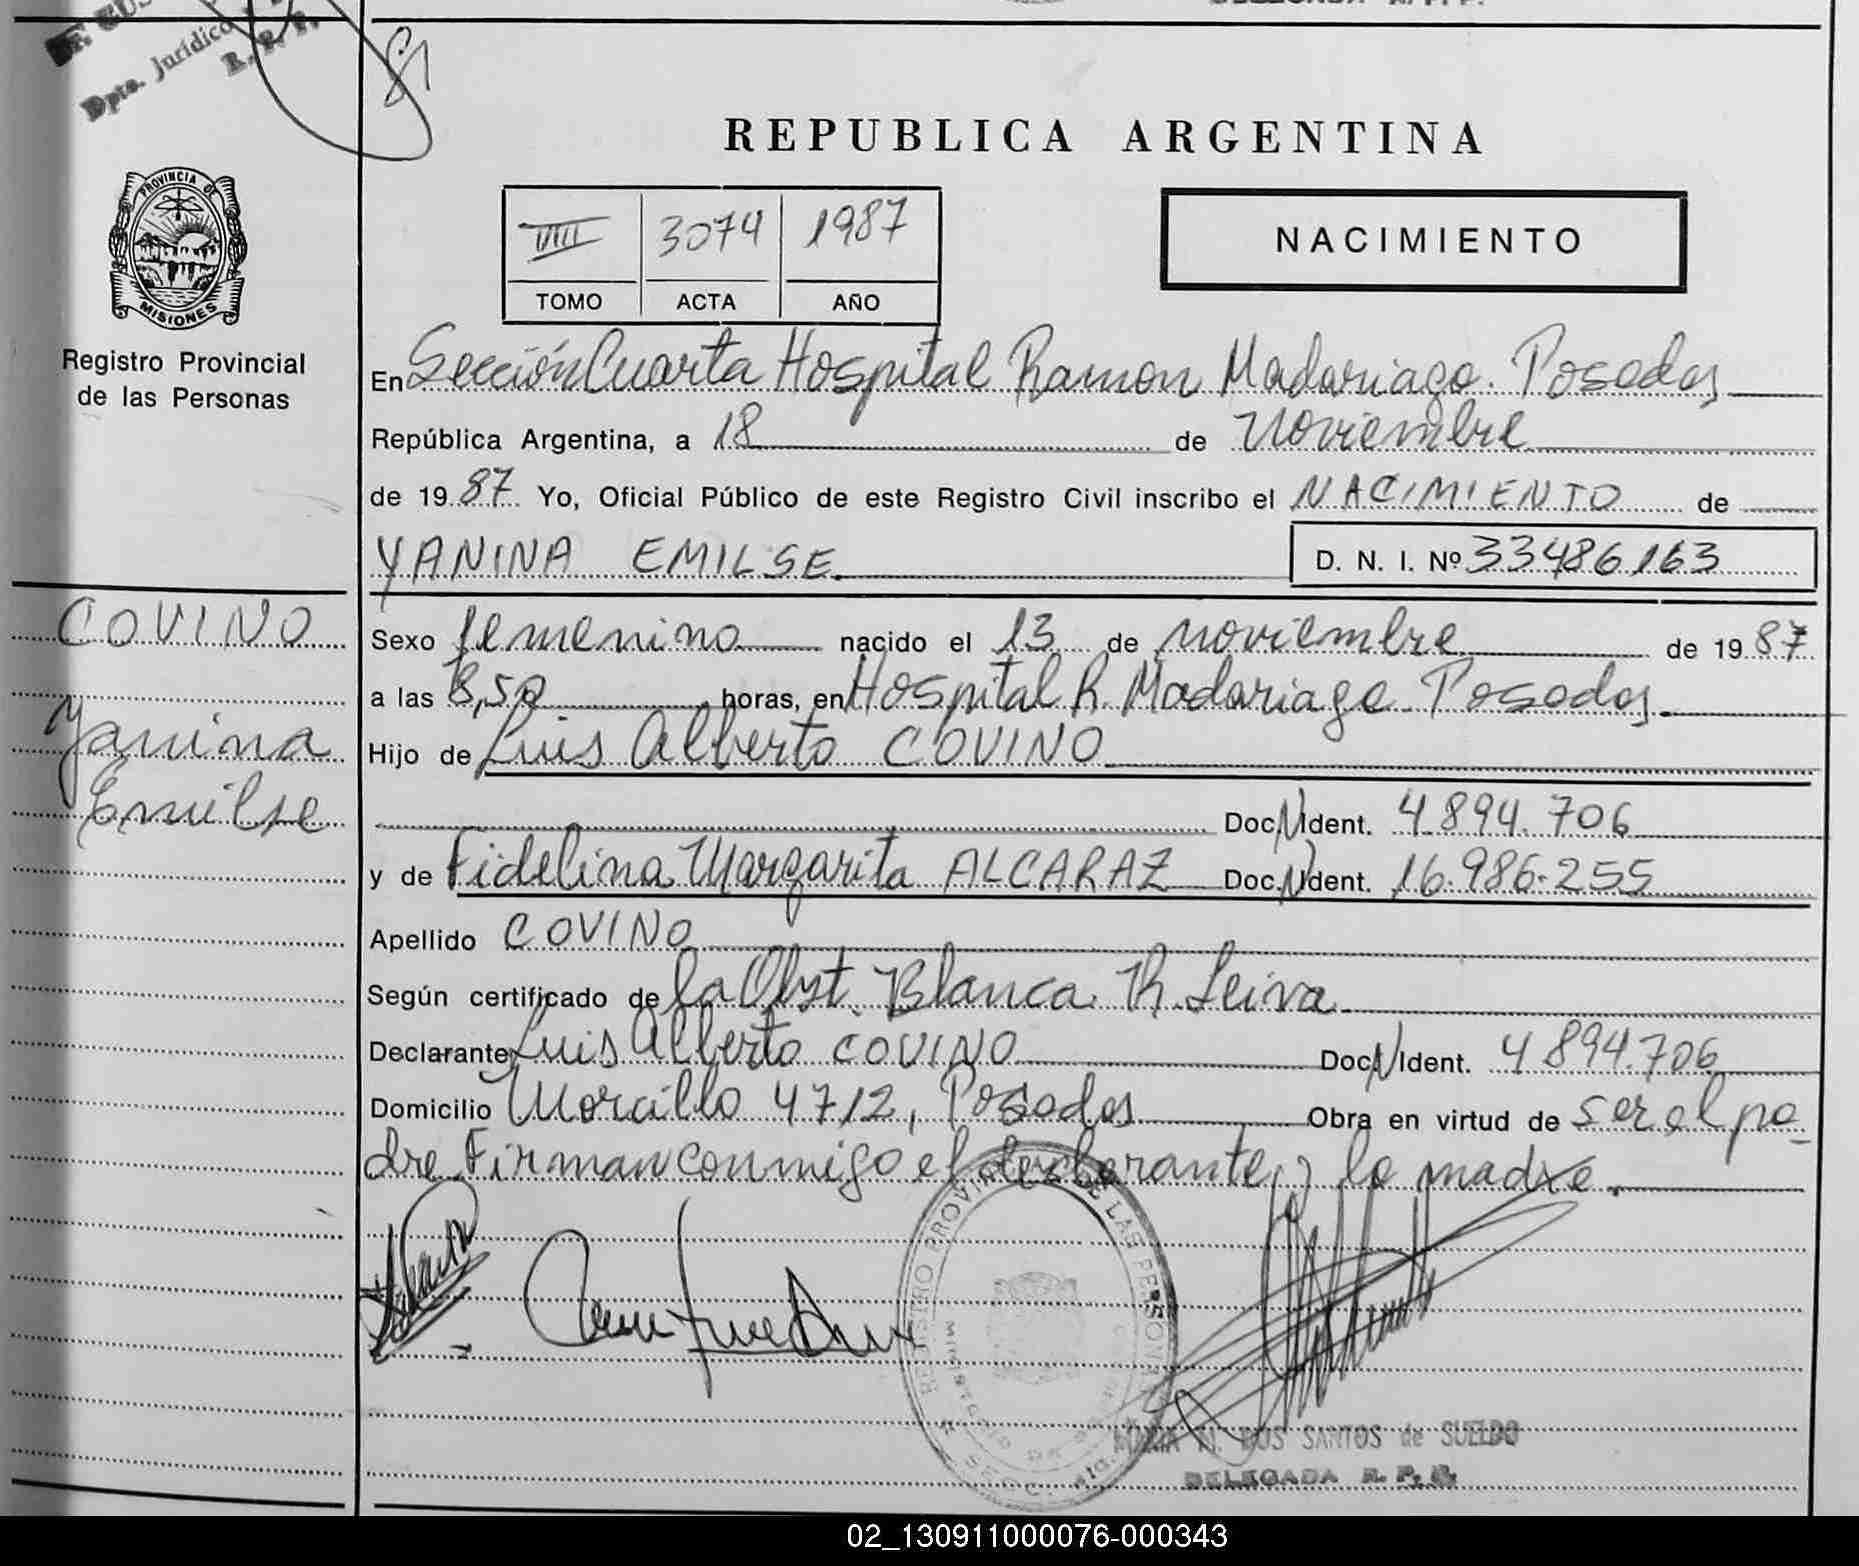 Dpto. Jurídico
R. P. P.
REPUBLICA ARGENTINA
PROVINCIA DE
MISIONES
Registro Provincial
de las Personas
VIII 3074 1987
TOMO ACTA AÑO
NACIMIENTO
En Sección Cuarta Hospital Ramon Madariaga. Posadas
República Argentina, a 18 de Noviembre
de 19 87 Yo, Oficial Público de este Registro Civil inscribo el NACIMIENTO de
YANINA EMILSE D. N. I. Nº 33486163
COVINO
Yanina
Emilse
Sexo femenino nacido el 13 de noviembre de 19 87
a las 8,50 horas, en Hospital R. Madariaga Posadas
Hijo de Luis Alberto COVINO
Doc. N Ident. 4.894.706
y de Fidelina Margarita ALCARAZ Doc. N Ident. 16.986.255
Apellido COVINO
Según certificado de la Obst. Blanca R. Leiva
Declarante Luis Alberto COVINO Doc. N Ident. 4894.706
Domicilio Morcillo 4712, Posadas Obra en virtud de ser el pa-
dre Firman conmigo el declarante y la madre.
REGISTRO PROVINCIAL DE LAS PERSONAS
MARIA N. DOS SANTOS de SUELDO
DELEGADA R. P. P.
02_130911000076-000343